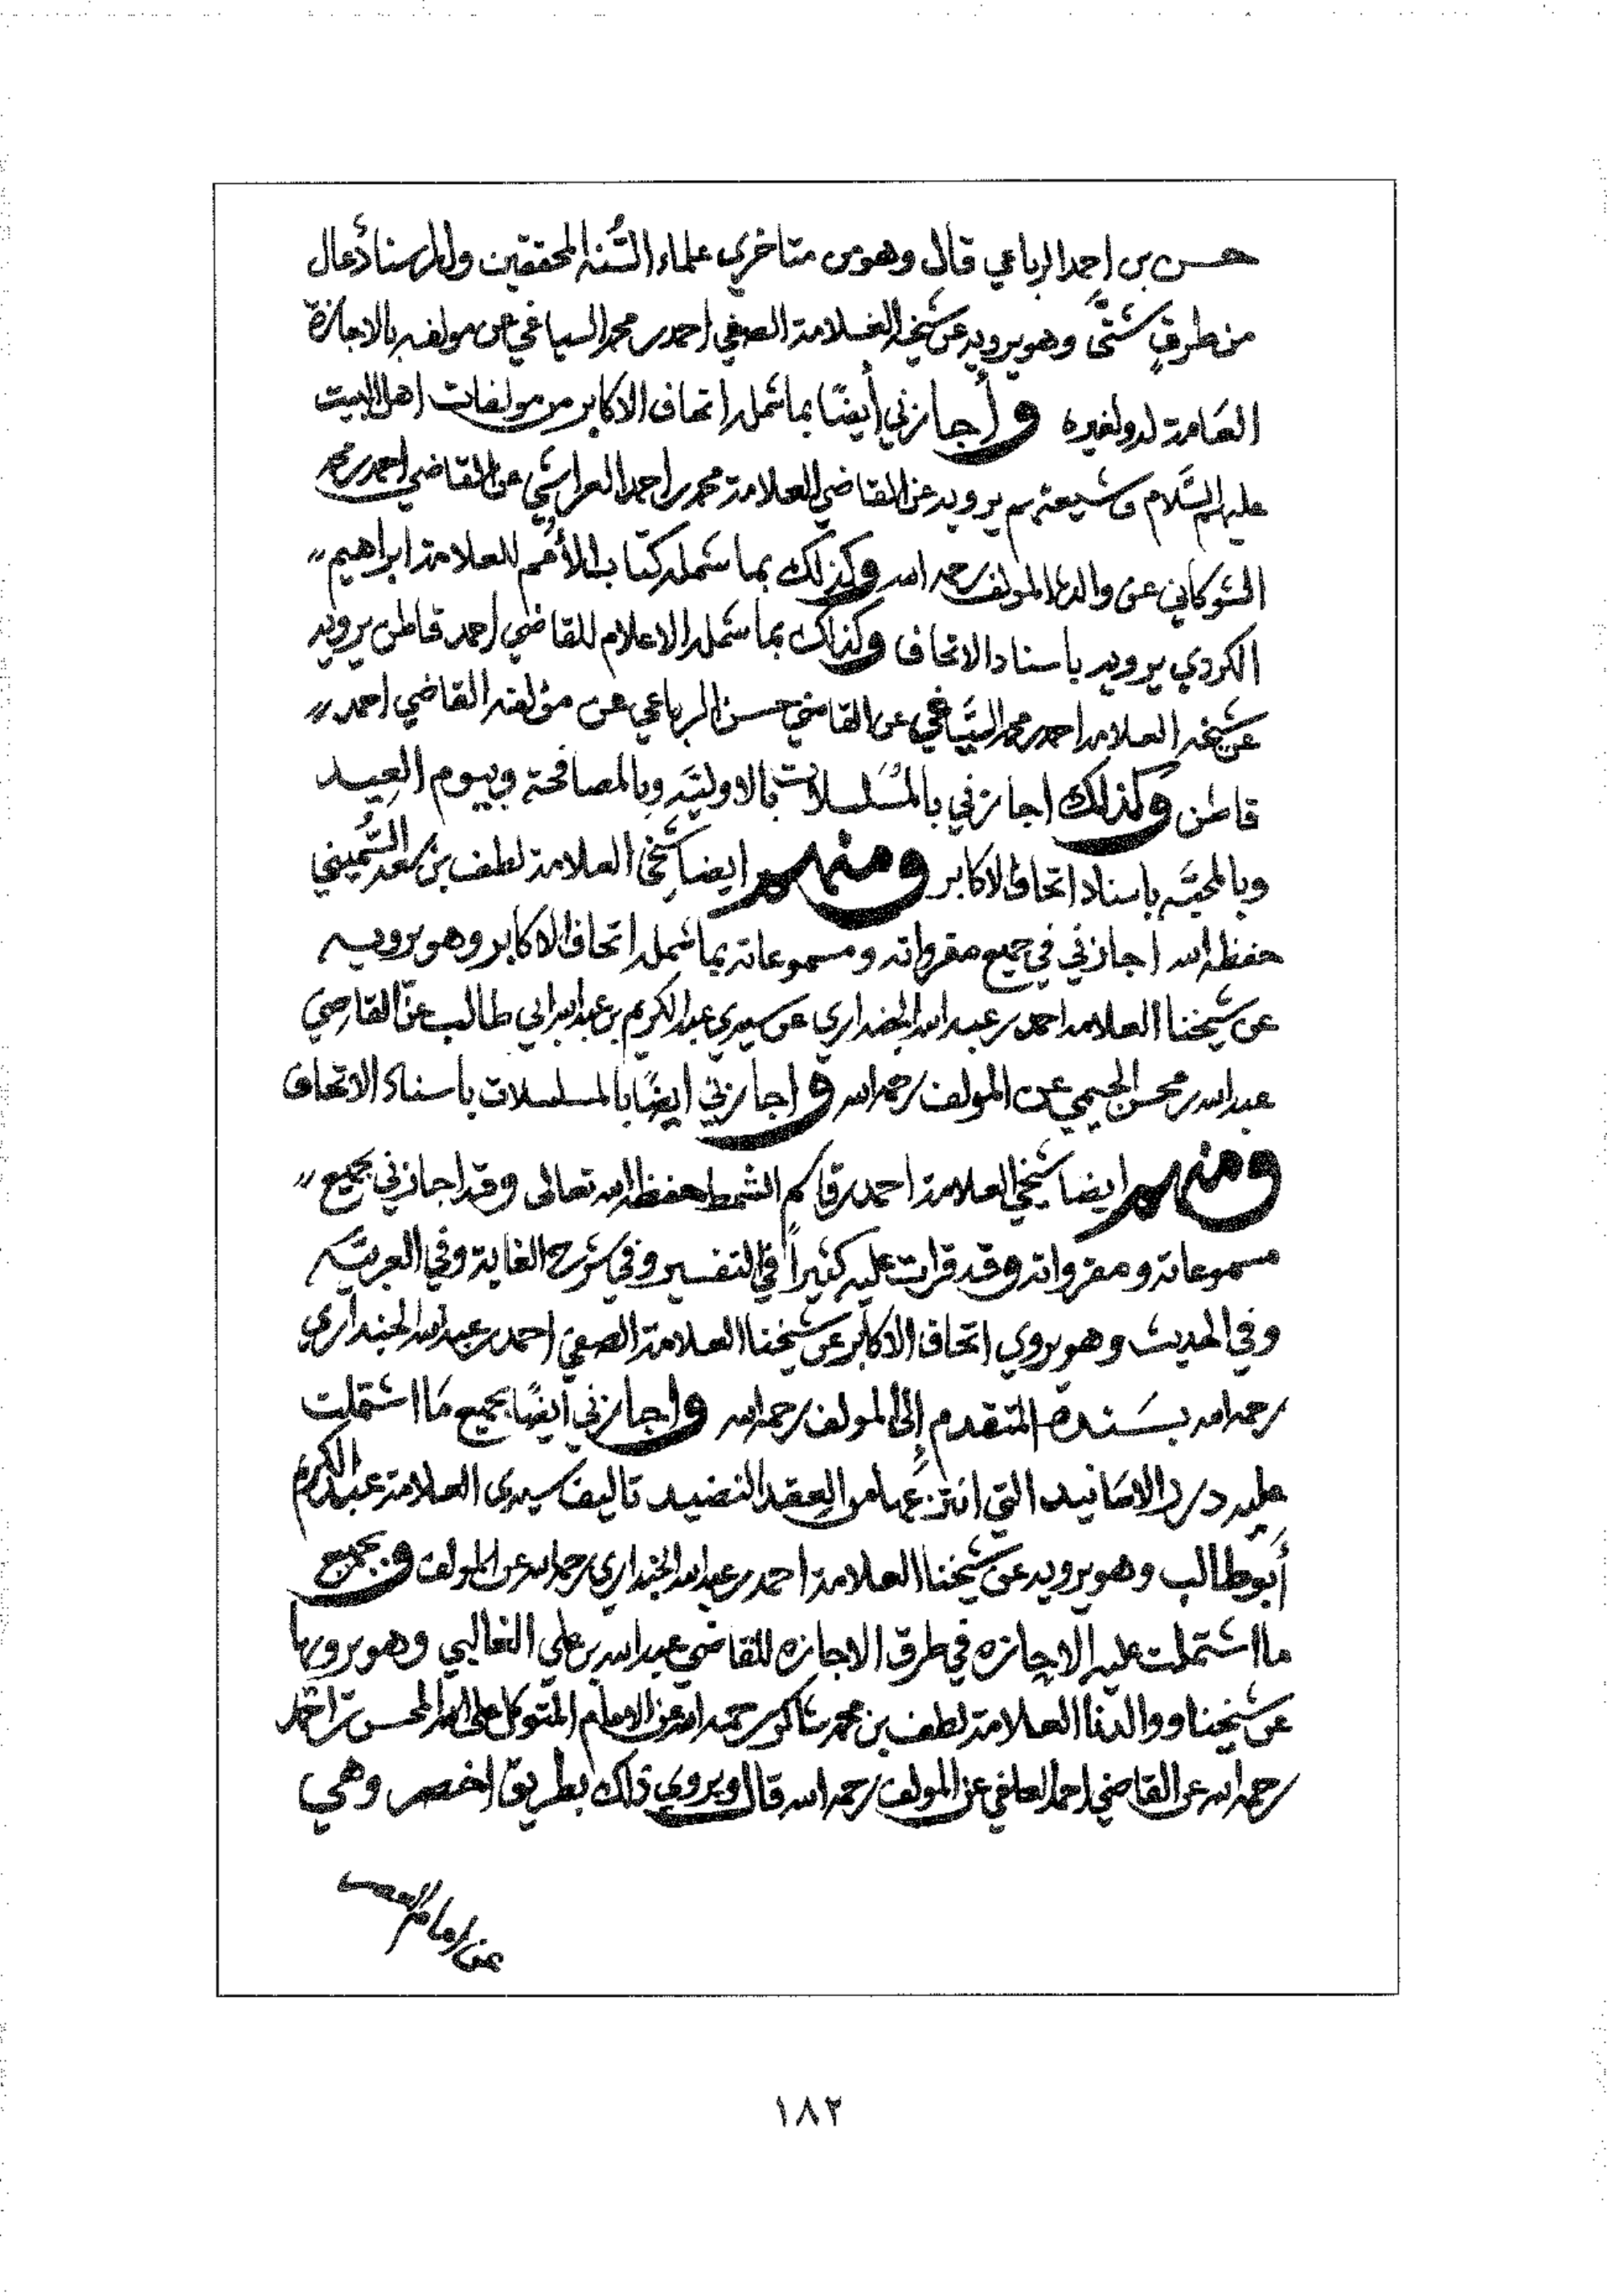 حسن بن احمد الرباعي قال وهو من متاخري علماء السُّنه المحققين وله إسنادٌ عال
من طرقٍ شتَّى وهو يرويه عن شيخه العلامة الصفي احمد بن محمد السياغي عن مولفه بالاجازة
العَامة له ولغيره وأجازني أيضًا بما شمله اتحاف الاكابر من مولفات اهل البيت
عليهم السَّلام وشيعتهم يرويه عن القاضي العلامة محمد بن احمد العراشي عن القاضي احمد بن محمد
الشوكاني عن والده المولف رحمه الله وكذلك بما شمله كتاب الأمم للعلامة ابراهيم
الكردي يرويه باسناد الاتحاف وكذلك بما شمله الاعلام للقاضي احمد قاطن يرويه
عن شيخه العلامه احمد بن محمد السَّيَاغي عن القاضي حسن الرباعي عن مؤلفه القاضي احمد
قاطن وكذلك اجازني بالمُسَلسلات بالاوليَّه وبالمصافحة وبيوم العِيد
وبالمحبَّه باسناد اتحاف الاكابر ومنهم ايضا شَيخي العلامة لطف بن سعد السُّميني
حفظه الله اجازني في جميع مقرواته ومسموعاته بما شمله اتحاف الاكابر وهو يرويه
عن شيخنا العلامه احمد بن عبد الله الجنداري عن سيدي عبد الكريم بن عبد الله ابي طالب عن القاضي
عبد الله بن محسن الحيمي عن المولف رحمه الله واجازني ايضًا بالمسلسلات باسناد الاتحاف
ومنهم ايضا شيخي العلامة احمد بن قاسم الشمط حفظه الله تعالى وقد اجازني بجميع
مسموعاته ومقرواته وقد قرات عليه كثيراً في التفسير وفي شرح الغاية وفي العربيَّه
وفي الحديث وهو يروي اتحاف الاكابر عن شيخنا العلامة الصفي احمد بن عبد الله الجنداري
رحمه الله بسَنده المتقدم إلى المولف رحمه الله واجازني أيضًا بجميع مَا اشتملت
عليه درر الاسَانيد التي انتزعها من العِقد النضيد تاليف سيدي العلامة عبد الكريم
أبو طالب وهو يرويه عن شيخنا العلامة احمد بن عبد الله الجنداري رحمه الله عن المولف وبجميع
ما اشتملت عليه الاجازه في طرق الاجازه للقاضي عبد الله بن علي الغالبي وهو يرويها
عن شيخنا ووالدنا العلامة لطف بن محمد شاكر رحمه الله عن الامام المتوكل على الله المحسن بن احمد
رحمه الله عن القاضي احمد العلفي عن المولف رحمه الله قال ويروي ذلك بطريق اخصر وهي
عن امام
١٨٢